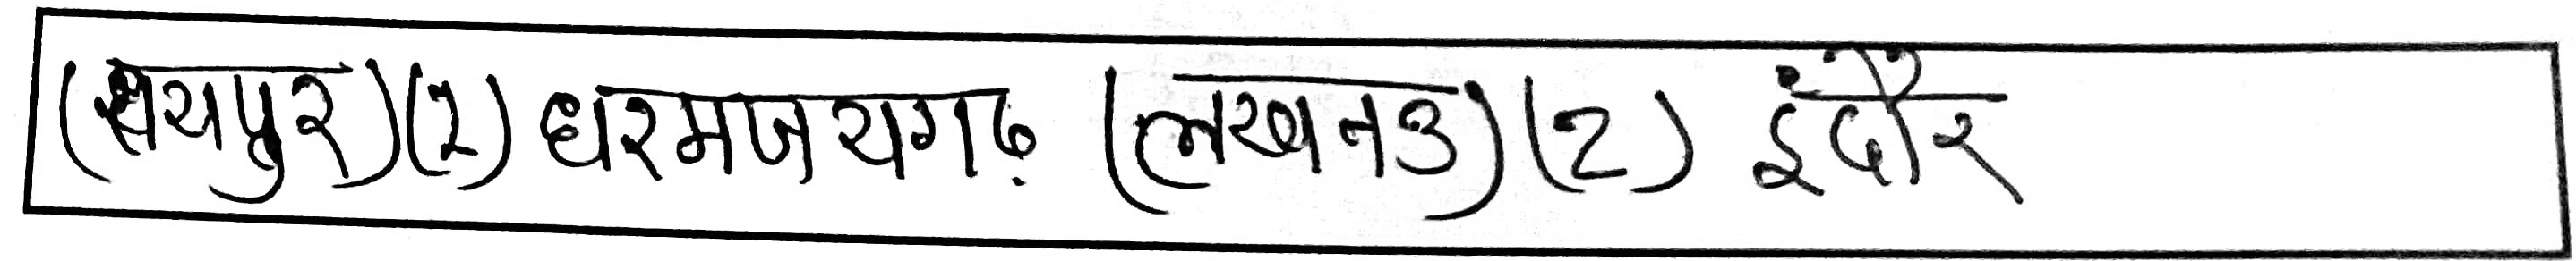 (रायपुर) (2) धरमजयगढ़ (लखनउ) (2) इंदौर